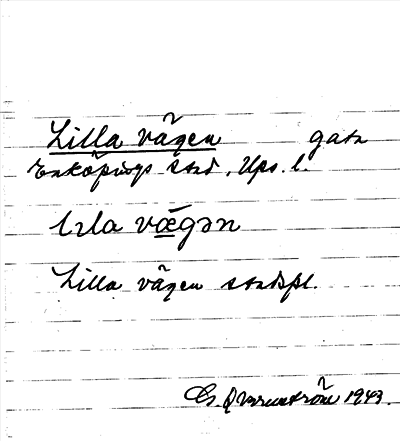 Lilla vägen gata
Enköpings stad, Ups. l.
lɩla væ̀gən
Lilla vägen stadspl.
1943.